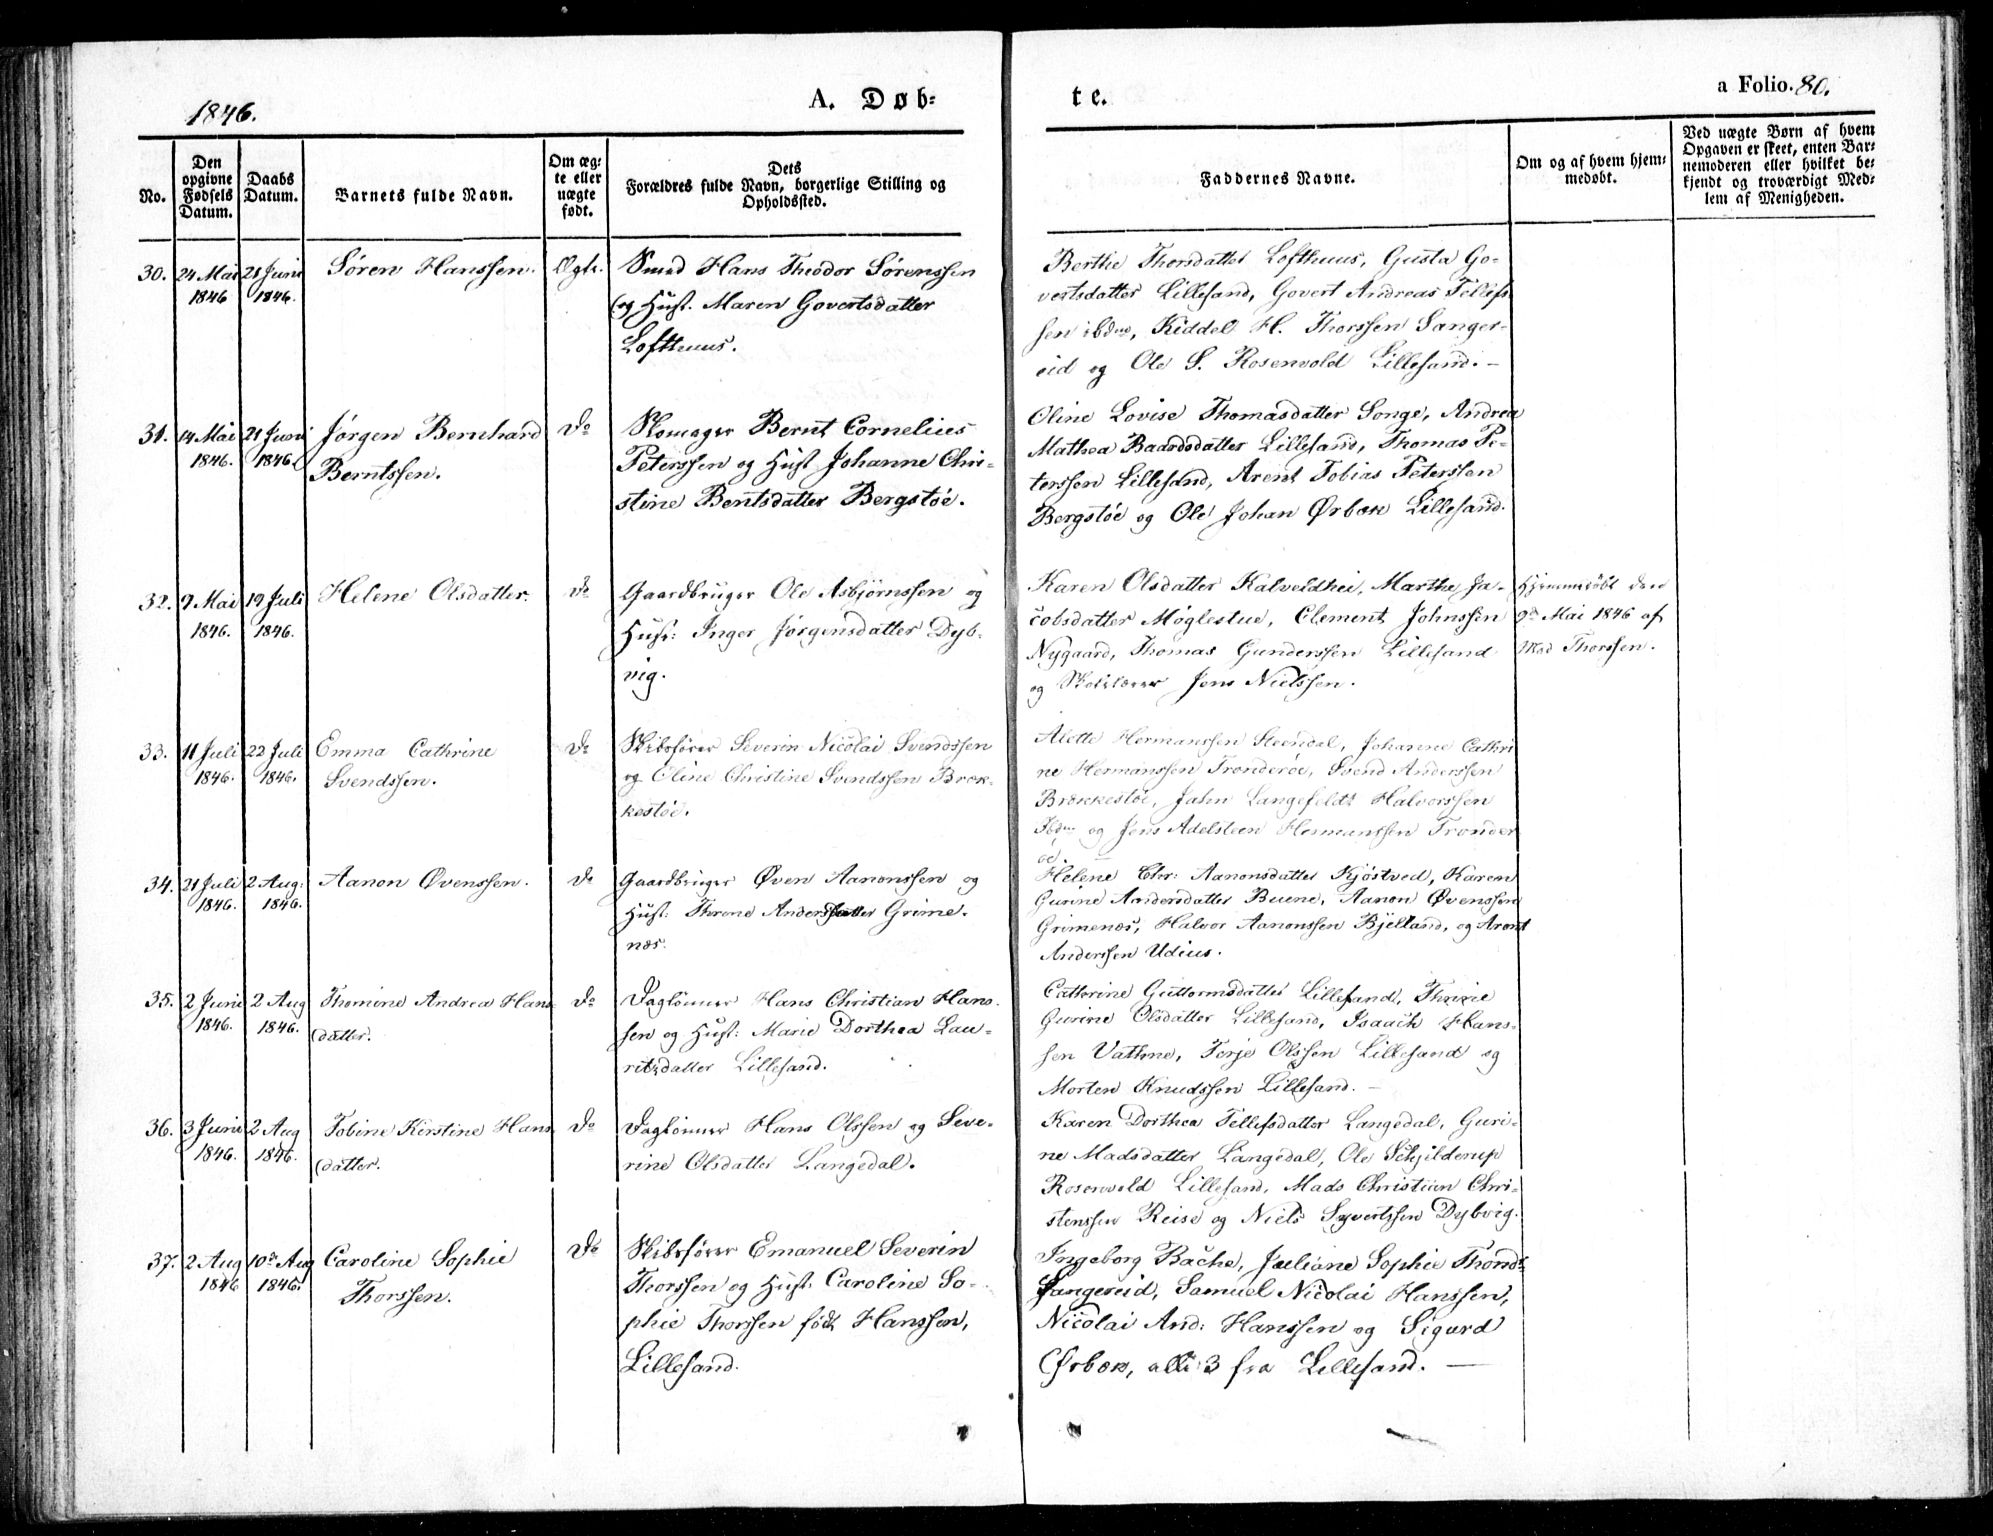 1846.
A. Døb=
te.
a Folio. 80.
No.
Den opgivne Fødsels Datum.
Daabs Datum.
Barnets fulde Navn.
Om æg=
te eller
uægte
født.
Dets
Forældres fulde Navn, borgerlige Stilling og
Opholdssted.
Faddernes Navne.
Om og af hvem hjem=
medøbt.
Ved uægte Børn af hvem
Opgaven er skeet, enten Bar=
nemoderen eller hvilket be=
kjendt og troværdigt Med=
lem af Menigheden.
30. 24 Mai 1846 21 Juni 1846.
Søren Hanssen.
Ægte.
Smed Hans Theodor Sørenssen
og Hust. Maren Govertsdatter
Lofthuus.
Berthe Thorsdatter Lofthuus, Gusta Go-
vertsdatter Lillesand, Govert Andreas Tellefs
sen ibdm, Kiddel H. Thorssen Sanger-
eid og Ole S. Rosenvold Lillesand. -
31. 14 Mai 1846. 21 Juni 1846.
Jørgen Bernhard
Berntssen.
Do
Skomager Bernt Cornelius
Peterssen og Hust Johanne Chri-
stine Bentsdatter Bergstøe.
Oline Lovise Thomasdatter Songe, Andrea
Mathea Baardsdatter Lillesand, Thomas Pe-
terssen Lillesand, Arent Tobias Peterssen
Bergstøe og Ole Johan Ørbæk Lillesand.
32. 9 Mai 1846. 19 Juli 1846.
Helene Olsdatter.
Do
Gaardbruger Ole Asbjørnssen og
Hust: Inger Jørgensdatter Dyb-
vig.
Karen Olsdatter Kalveldhei, Marthe Ja-
cobsdatter Møglestue, Clement Johnssen
Nygaard, Thomas Gunderssen Lillesand
og Skolelærer Jens Nielssen.
Hjemmedøbt den
9de Mai 1846 af
Mad Thorssen.
33. 11 Juli 1846. 22 Juli 1846.
Emma Cathrine
Svendssen.
Do
Skibsfører Severin Nicolai Svendssen
og Oline Christine Svendssen Bræk-
kestøe.
Alette Hermanssen Steendal, Johanne Cathri
ne Hermanssen Tronderøe, Svend Anderssen
Brækkestøe, Jahn Langefeldt Halvorssen
Ibdm og Jens Adelsteen Hermanssen Tronder
øe.
34. 21 Juli 1846. 2 Aug: 1846.
Aanon Øvenssen.
Do
Gaardbruger Øven Aanonssen og
Hust: Throne Andersdatter Grime-
næs.
Helene Chr: Aanonsdatter Kjøstved, Karen
Gurine Andersdatter Buene, Aanon Øvenssen
Grimenæs, Halvor Aanonssen Bjelland, og Arent
Anderssen Udius.
35. 2 Juni 1846. 2 Aug 1846.
Thomine Andrea Hans
datter.
Do
Daglønner Hans Christian Hans-
sen og Hust: Marie Dorthea Lau-
ritzdatter Lillesand.
Cathrine Guttormsdatter Lillesand,
Gurine Olsdatter Lillesand, Isaach Hans-
sen Vathne, Terje Olssen Lillesand og
Morten Knudssen Lillesand. -
36. 3 Juni 1846. 2 Aug 1846.
Tobine Kirstine Hans
datter.
Do
Daglønner Hans Olssen og Seve-
rine Olsdatter Langedal.
Karen Dorthea Tellefsdatter Langedal, Guri-
ne Madsdatter Langedal, Ole Schjilderup
Rosenvold Lillesand, Mads Christian Chri-
stenssen Reise og Niels Syvertssen Dybvig.
37. 2 Aug 1846 10de Aug 1846.
Caroline Sophie
Thorssen.
Do
Skibsfører Emanuel Severin
Thorssen og Hust: Caroline So-
phie Thorssen født Hanssen,
Lillesand.
Ingeborg Bache, Juliane Sophie Thonds
Sangereid, Samuel Nicolai Hanssen,
Nicolai And: Hanssen og Sigurd
Ørbæk, alle 3 fra Lillesand. -